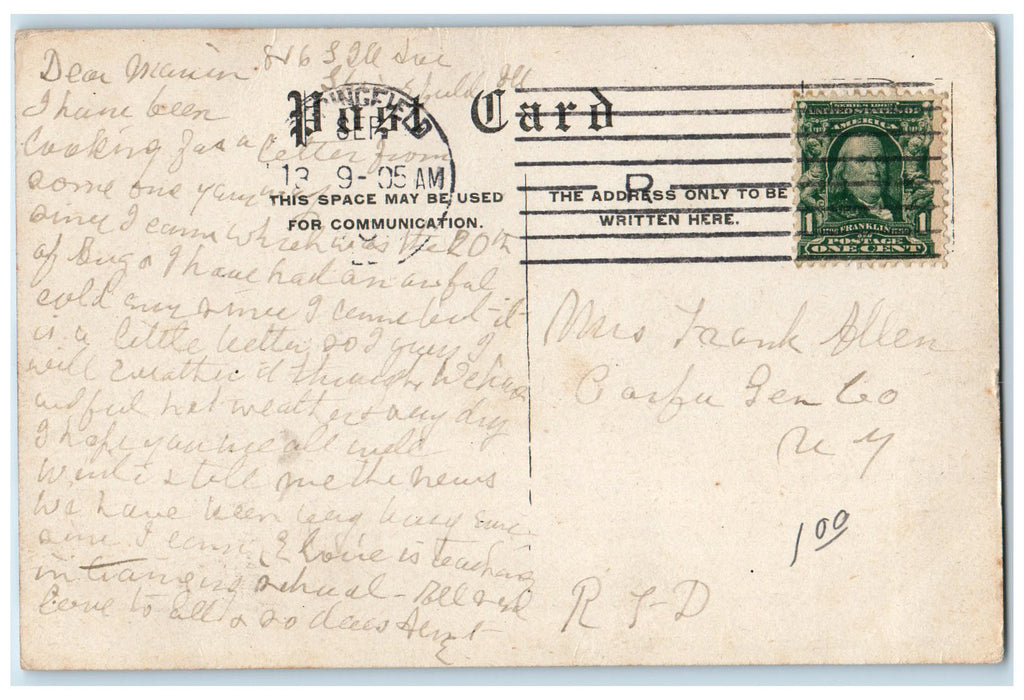 816 S Ill Ave
Springfield Ill
Dear Marion
I have been
looking for a letter from
some one
since I came which was the 20th
of Aug & I have had an awful
cold ever since I came but it
is a little better so I guess I
will weather it through. We have
awful hot weather & very dry
I hope you are all well
write & tell me the news
We have been very busy ever
since I came. is teaching
in training school -
Love to all & so does Aunt
E
Post Card
SPRINGFIELD
SEP
13 9-05 AM
THIS SPACE MAY BE USED
FOR COMMUNICATION.
R
THE ADDRESS ONLY TO BE
WRITTEN HERE.
SERIES 1902
UNITED STATES OF
AMERICA
1 1
1706 FRANKLIN 1790
POSTAGE
ONE CENT
Mrs Frank Allen
Corfu Gen Co
N Y
1 00
R F D